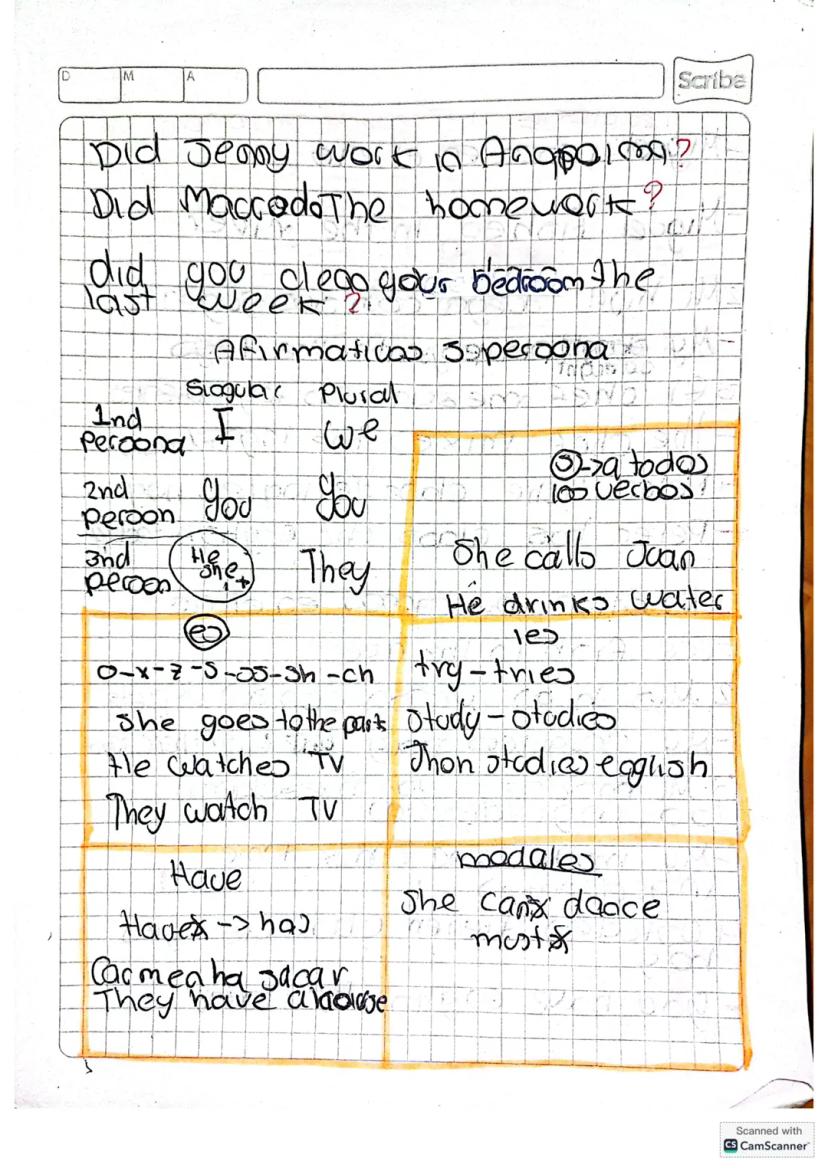 D M A
Scribe
Did Jenny work in Anapoima?
Did Maccedo The homework?
did you clean your bedroom the
last week?
Afirmaticas 3 persona
Singular Plural
1nd I We
Persona
2nd you you
person
3nd He They
person She it
S->a todos
los verbos
She calls Juan
He drinks water
es
o-x-z-s-ss-sh-ch
she goes to the park
He watches TV
They watch TV
ies
try-tries
study-studies
Jhon studies english
Have
Haves -> has
Carmen ha
They have a
modales
She can dance
must
Scanned with
CS CamScanner